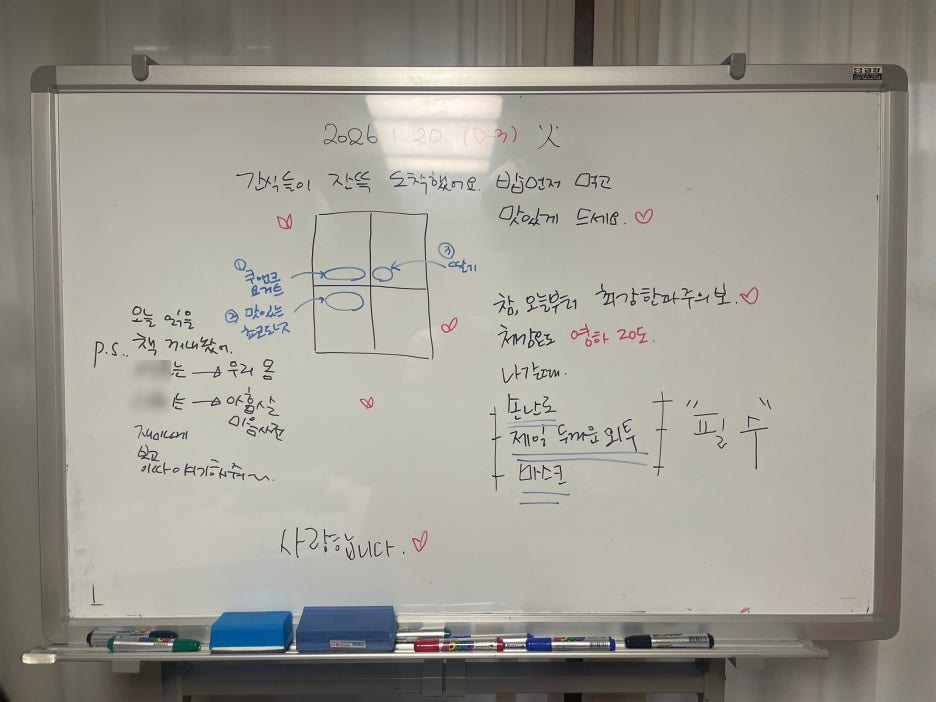 2026 1.20 (D-3) 火
간식들이 잔뜩 도착했어요. 밥먼저 먹고
맛있게 드세요.
① 쿠앤크
요거트
② 맛있는
초코란지
③
딸기
오늘 읽을
P.S.. 책 꺼내놨어.
는 → 우리 몸
는 → 아홉살
마음사전
재미나게
보고
이따 얘기해줘~.
참, 오늘부터 최강한파주의보.
체감온도 영하 20도.
나갈때.
손난로
제일 두꺼운 외투
마스크
"필수"
사랑합니다.
금강